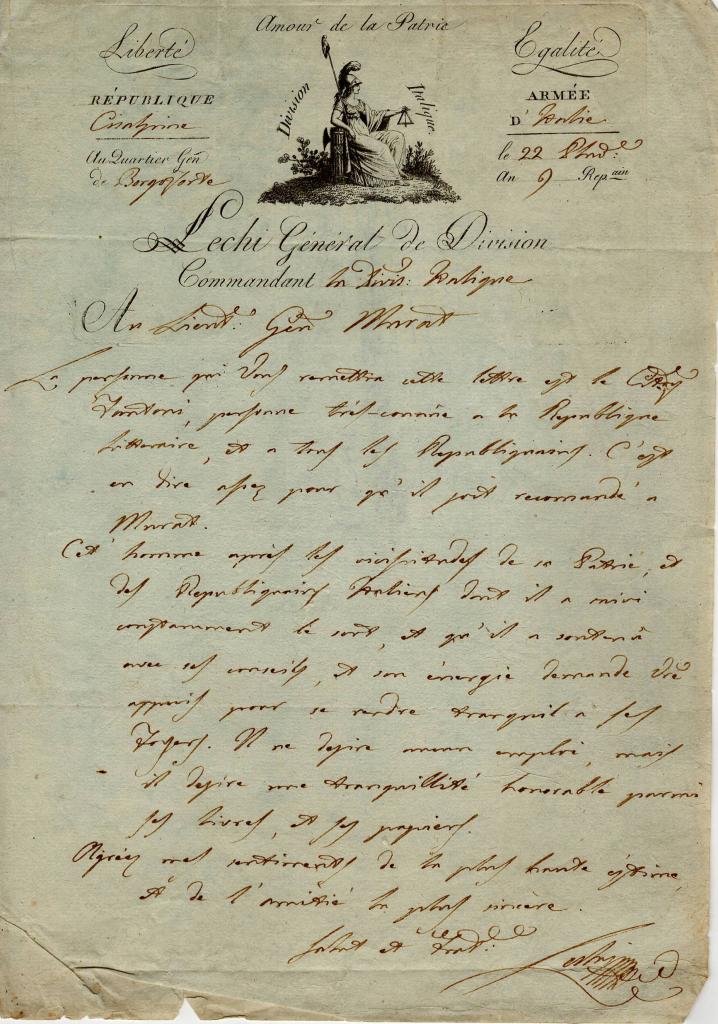 Amour de la Patrie
Liberté
Egalité
Division Italique
RÉPUBLIQUE
Cisalpine
ARMÉE
D'Italie
Au Quartier Gén
de Borgoforte
le 22 Pluv:
An 9 Rep.ain
Lechi Général de Division
Commandant la Divis: Italique
Au Lieut: Gen Murat
La personne qui Vous remettra cette lettre est le
personne très-connue a la Republique
litteraire, et a tous les Republiquains. C'est
en dire assez pour qu'il soit recomandé a
Murat.
Cet homme après les vicissitudes de sa Patrie, et
des Republiquains Italiens dont il a suivi
constamment le sort, et qu'il a soutenu
avec ses conseils, et son énergie demande Vre
appuis pour se rendre tranquil a ses
Foyers. Il ne desire aucun emploi, mais
il desire une tranquillité honorable parmi
ses livres, et ses papiers.
Agréez mes sentiments de la plus haute estime,
et de l'amitié la plus sincère.
Salut et Frat:
Lechi